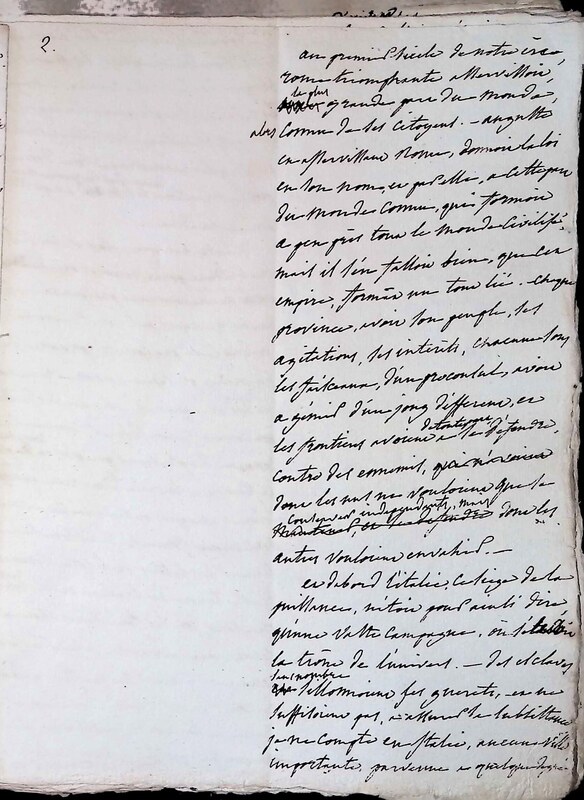 2.
au premier siecle de notre ère,
rome triomfrante asservissoit,
la plus
grande part du monde,
alors connu de ses citoyens. – auguste
en asservissant Rome, donnoit la loi
en son nom, et par elle, a cette part
du monde connu, qui formoit
a peu près tout le monde civilisé,
mais il s'en falloit bien, que cet
empire, format un tout lié. chaque
province, avoit son peuple, ses
agitations, ses intérêts, chacune sous
les faisceaux, d'un proconsul, avoit
a gémir d'un joug different, et
les frontieres avoient a se défendre,
contre des ennemis, qui n'avoient
dont les uns ne vouloient que se
conserver independants, mais
maintenir, et se defendre dont les
autres vouloient envahir. –
et dabord l'italie, ce siege de la
puissance, n'etoit pour ainsi dire
qu'une vaste campagne, où s'élevoit
le trône de l'univers. – des esclaves
sans nombre
sillonnoient ses guerets, et ne
suffisoient pas, a assurer la subsistance
je ne compte en Italie, aucune ville
importante, parvenue a quelque degré